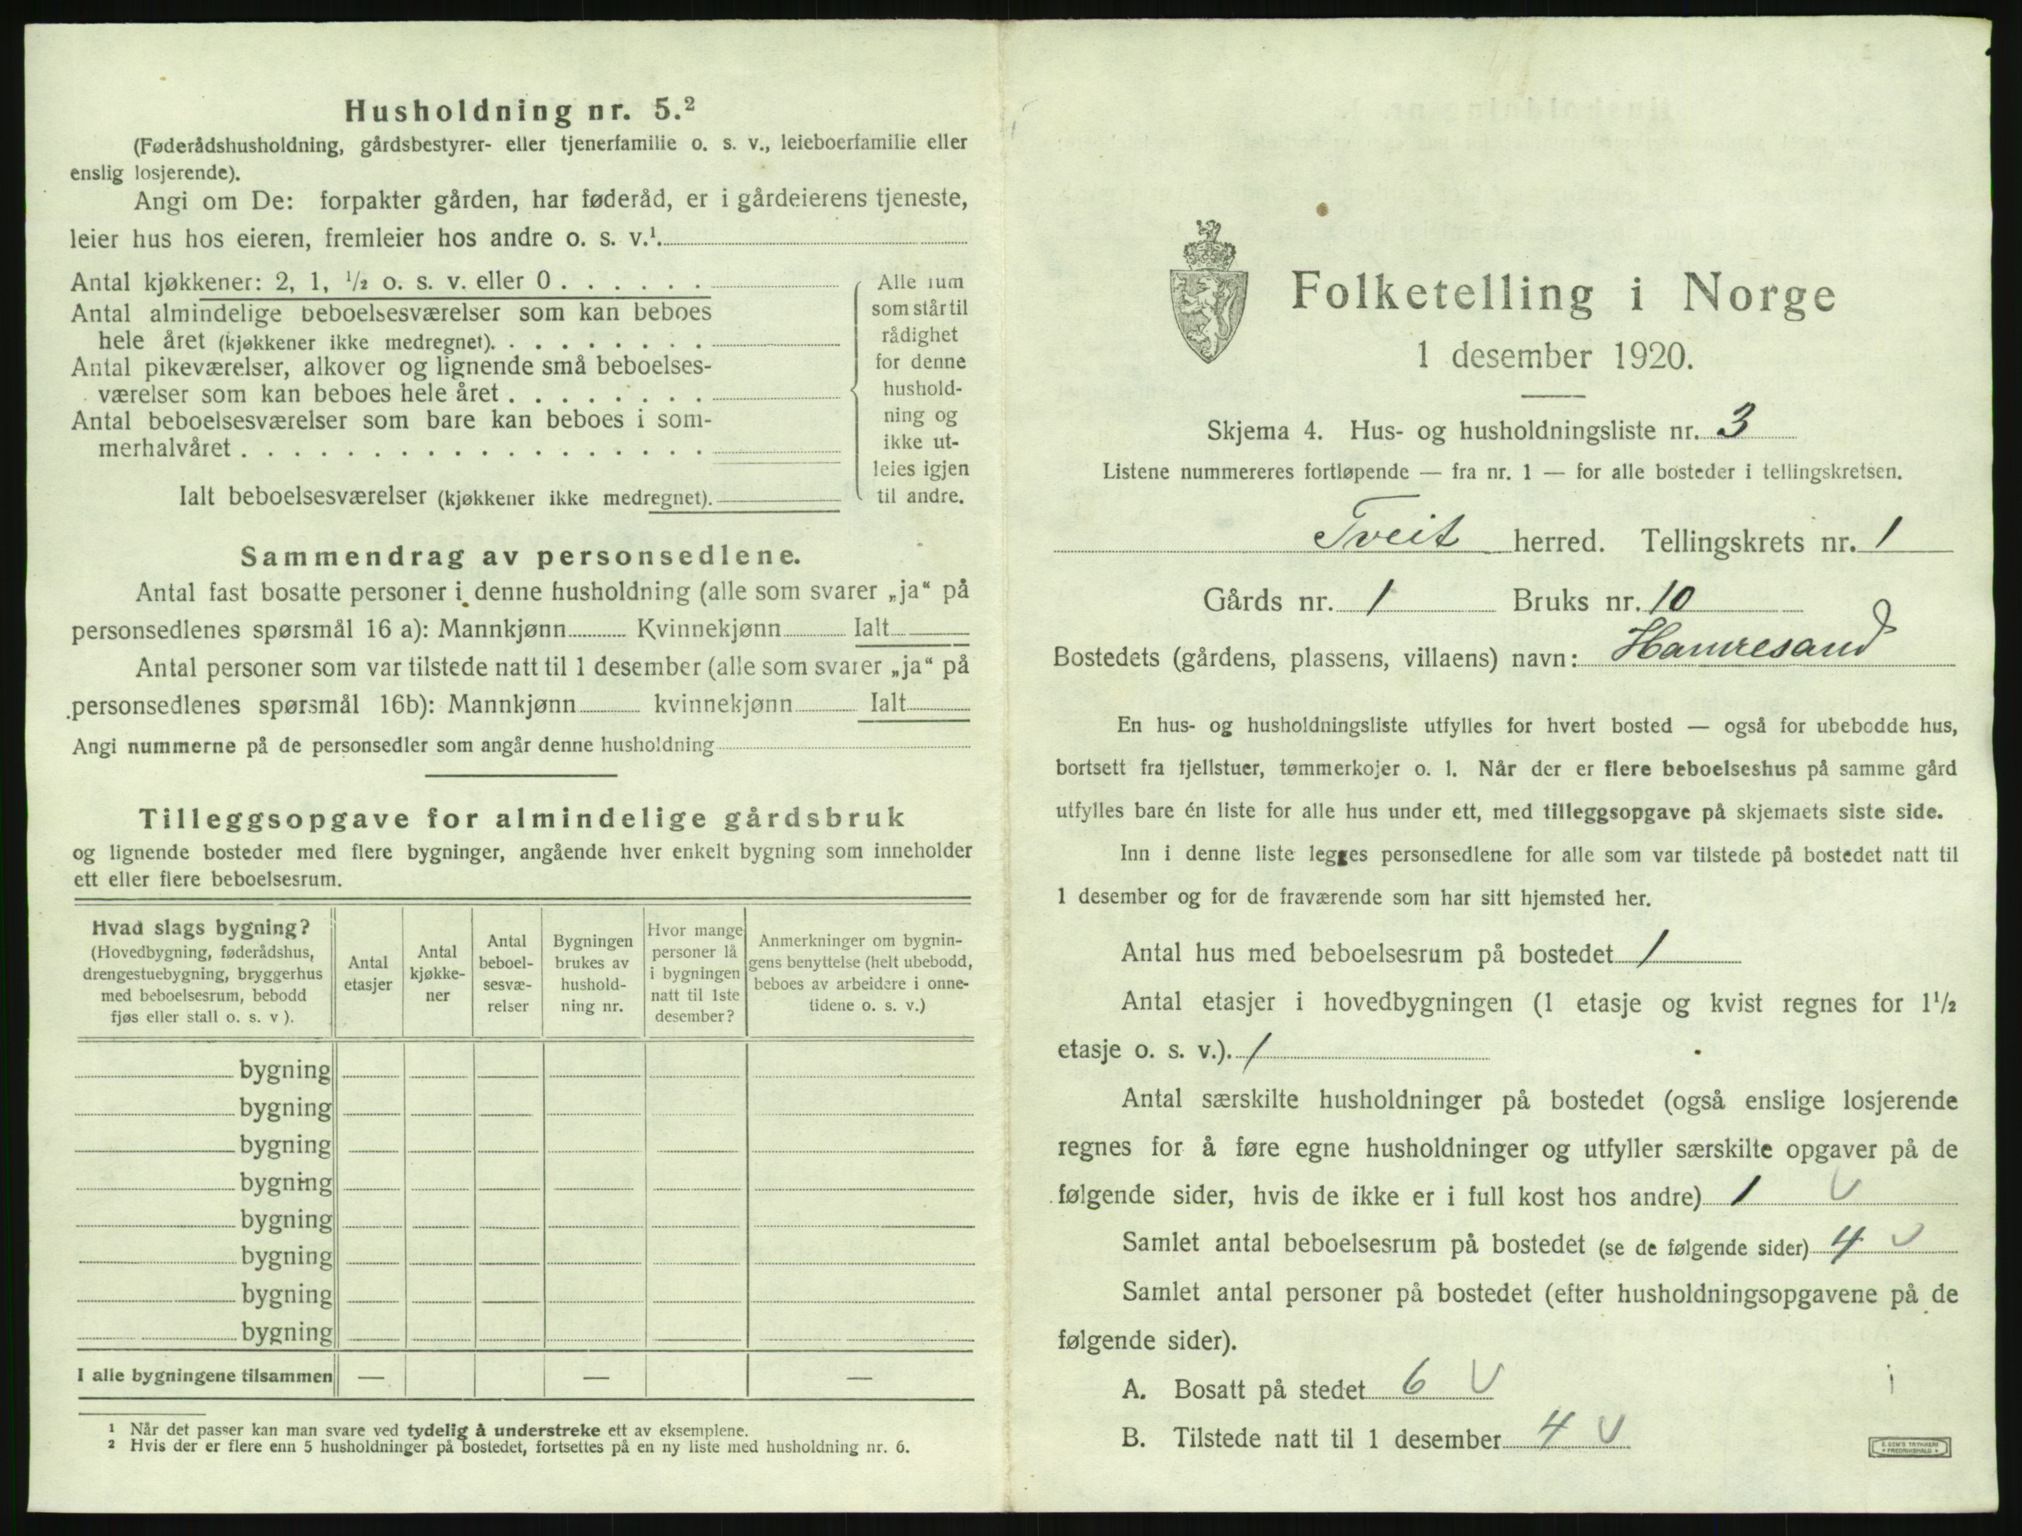 Husholdning nr. 5.²
(Føderådshusholdning, gårdsbestyrer- eller tjenerfamilie o. s. v., leieboerfamilie eller
enslig losjerende).
Angi om De: forpakter gården, har føderåd, er i gårdeierens tjeneste,
leier hus hos eieren, fremleier hos andre o. s. v.¹
Antal kjøkkener: 2, 1, ½ o. s. v. eller 0 . . . . . .
Antal almindelige beboelsesværelser som kan beboes
hele året (kjøkkener ikke medregnet). . . . . . . . .
Antal pikeværelser, alkover og lignende små beboelses-
værelser som kan beboes hele året . . . . . . . .
Antal beboelsesværelser som bare kan beboes i som-
merhalvåret . . . . . . . . . . . . . . . . . .
Ialt beboelsesværelser (kjøkkener ikke medregnet).
Alle rum
som står til
rådighet
for denne
hushold-
ning og
ikke ut-
leies igjen
til andre.
Sammendrag av personsedlene.
Antal fast bosatte personer i denne husholdning (alle som svarer „ja“ på
personsedlenes spørsmål 16 a): Mannkjønn Kvinnekjønn Ialt
Antal personer som var tilstede natt til 1 desember (alle som svarer „ja“ på
personsedlenes spørsmål 16b): Mannkjønn kvinnekjønn Ialt
Angi nummerne på de personsedler som angår denne husholdning
Tilleggsopgave for almindelige gårdsbruk
og lignende bosteder med flere bygninger, angående hver enkelt bygning som inneholder
ett eller flere beboelsesrum.
Hvad slags bygning?
(Hovedbygning, føderådshus,
drengestuebygning, bryggerhus
med beboelsesrum, bebodd
fjøs eller stall o. s. v ).
Antal
etasjer
Antal
kjøkke-
ner
Antal
beboel-
sesvæ-
relser
Bygningen
brukes av
hushold-
ning nr.
Hvor mange
personer lå
i bygningen
natt til 1ste
desember?
Anmerkninger om bygnin-
gens benyttelse (helt ubebodd,
beboes av arbeidere i onne-
tidene o. s. v.)
bygning
bygning
bygning
bygning
bygning
bygning
bygning
bygning
I alle bygningene tilsammen — — —
¹ Når det passer kan man svare ved tydelig å understreke ett av eksemplene.
² Hvis der er flere enn 5 husholdninger på bostedet, fortsettes på en ny liste med husholdning nr. 6.
Folketelling i Norge
1 desember 1920.
Skjema 4. Hus- og husholdningsliste nr. 3
Listene nummereres fortløpende — fra nr. 1 — for alle bosteder i tellingskretsen.
Tveit herred. Tellingskrets nr. 1
Gårds nr. 1 Bruks nr. 10
Bostedets (gårdens, plassens, villaens) navn: Hamresand
En hus- og husholdningsliste utfylles for hvert bosted — også for ubebodde hus,
bortsett fra fjellstuer, tømmerkojer o. l. Når der er flere beboelseshus på samme gård
utfylles bare én liste for alle hus under ett, med tilleggsopgave på skjemaets siste side.
Inn i denne liste legges personsedlene for alle som var tilstede på bostedet natt til
1 desember og for de fraværende som har sitt hjemsted her.
Antal hus med beboelsesrum på bostedet 1
Antal etasjer i hovedbygningen (1 etasje og kvist regnes for 1½
etasje o. s. v.). 1
Antal særskilte husholdninger på bostedet (også enslige losjerende
regnes for å føre egne husholdninger og utfyller særskilte opgaver på de
følgende sider, hvis de ikke er i full kost hos andre) 1
Samlet antal beboelsesrum på bostedet (se de følgende sider) 4
Samlet antal personer på bostedet (efter husholdningsopgavene på de
følgende sider).
A. Bosatt på stedet 6
B. Tilstede natt til 1 desember 4